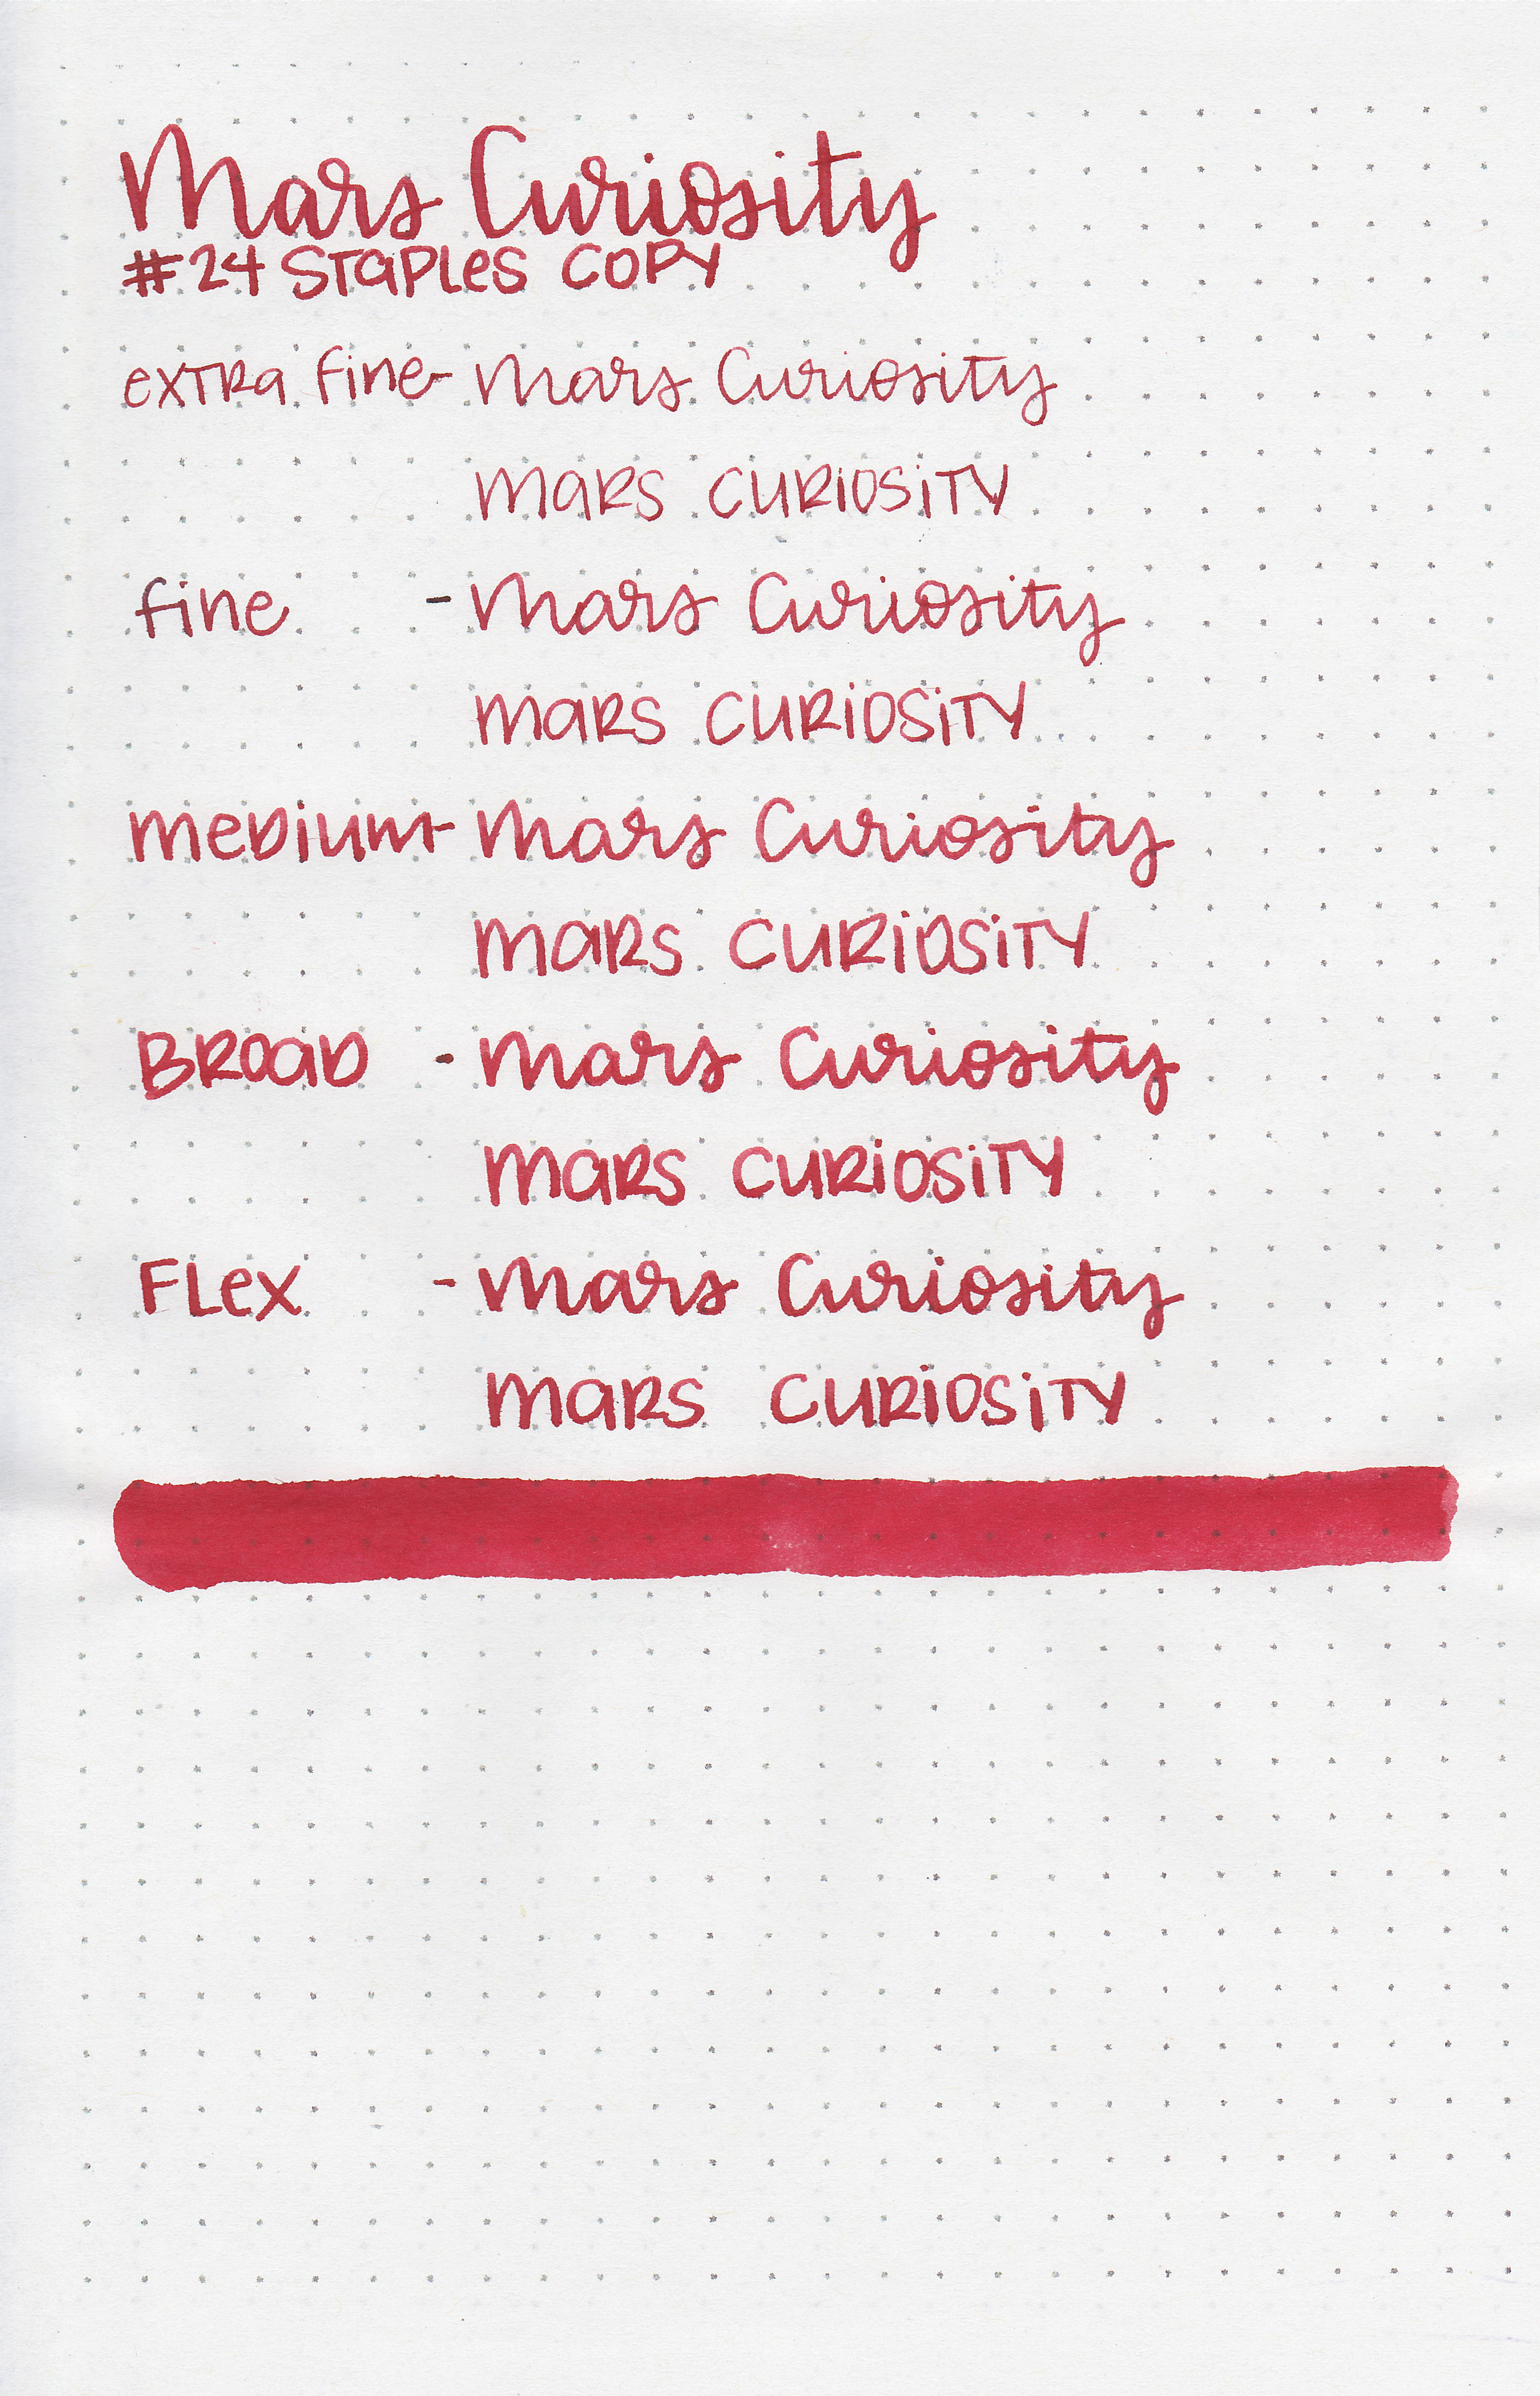 Mars Curiosity
#24 Staples Copy
extra fine - Mars Curiosity
Mars Curiosity
fine - Mars Curiosity
Mars Curiosity
Medium - Mars Curiosity
Mars Curiosity
Broad - Mars Curiosity
Mars Curiosity
Flex - Mars Curiosity
Mars Curiosity